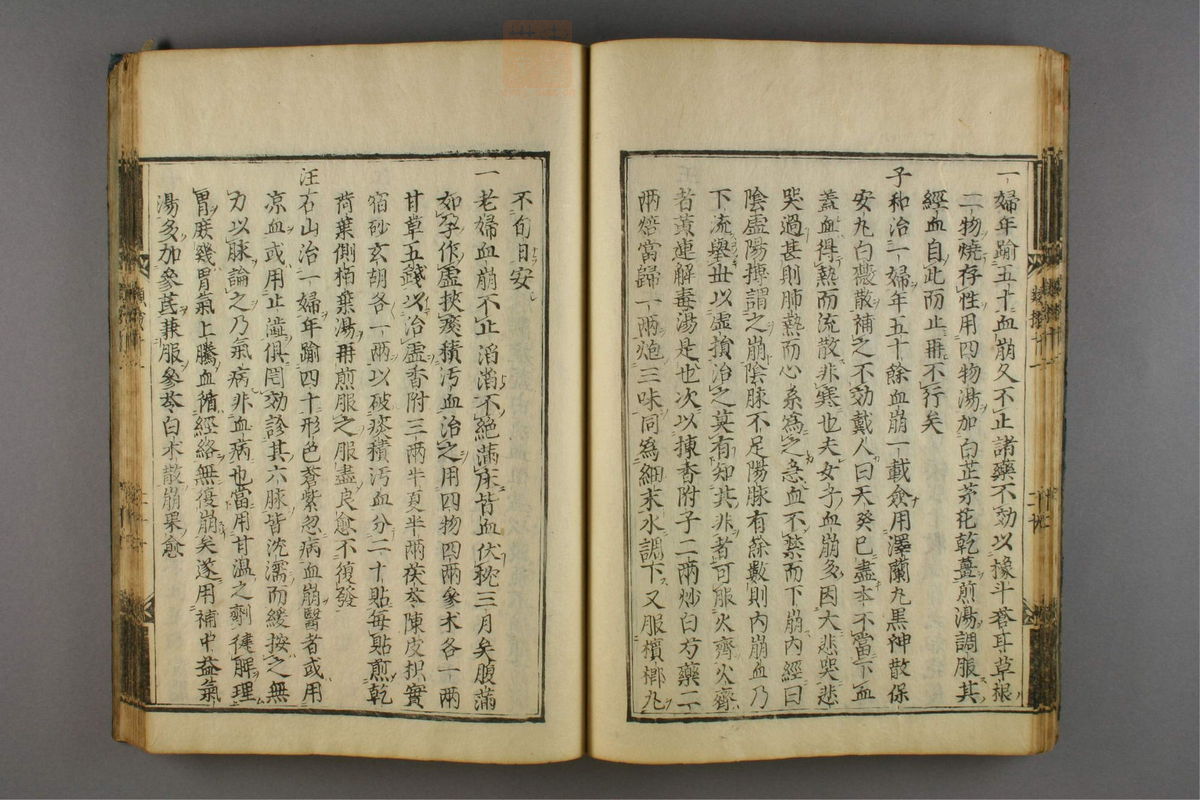 一婦年踰五十血崩久不止諸藥不効以橡斗蒼耳草根
二物燒存性用四物湯加白芷茅花乾薑煎湯調服其
經血自此而止再不行矣
子和治一婦年五十餘血崩一載僉用澤蘭丸黑神散保
安丸白薇散補之不効戴人曰天癸已盡本不當下血
蓋血得熱而流散非寒也夫女子血崩多因大悲哭悲
哭過甚則肺熱而心系為之急血不禁而下崩内經曰
陰虛陽搏謂之崩陰脉不足陽脉有餘數則内崩血乃
下流舉世以虛損治之莫有知其非者可服火齊火齊
者黄連解毒湯是也次以揀香附子二兩炒白芍藥二
兩焙當歸一兩炮三味同為細末水調下又服檳榔丸
不旬日安
一老婦血崩不止滔滔不絶滿床皆血伏枕三月矣腹滿
如孕作虛挾痰積汚血治之用四物四兩參术各一兩
甘草五錢以治虛香附三兩半夏半兩茯苓陳皮枳實
宿砂玄胡各一兩以破痰積汚血分二十貼每貼煎乾
荷葉側栢葉湯再煎服之服盡良愈不復發
汪石山治一婦年踰四十形色蒼紫忽病血崩醫者或用
凉血或用止澁俱罔効診其六脉皆沈濡而緩按之無
力以脉論之乃氣病非血病也當用甘温之劑健脾理
胃庶幾胃氣上騰血循經絡無復崩矣遂用補中益氣
湯多加參芪兼服參苓白术散崩果愈